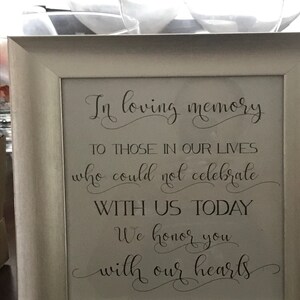 In loving memory
TO THOSE IN OUR LIVES
who could not celebrate
WITH US TODAY
We honor you
with our hearts